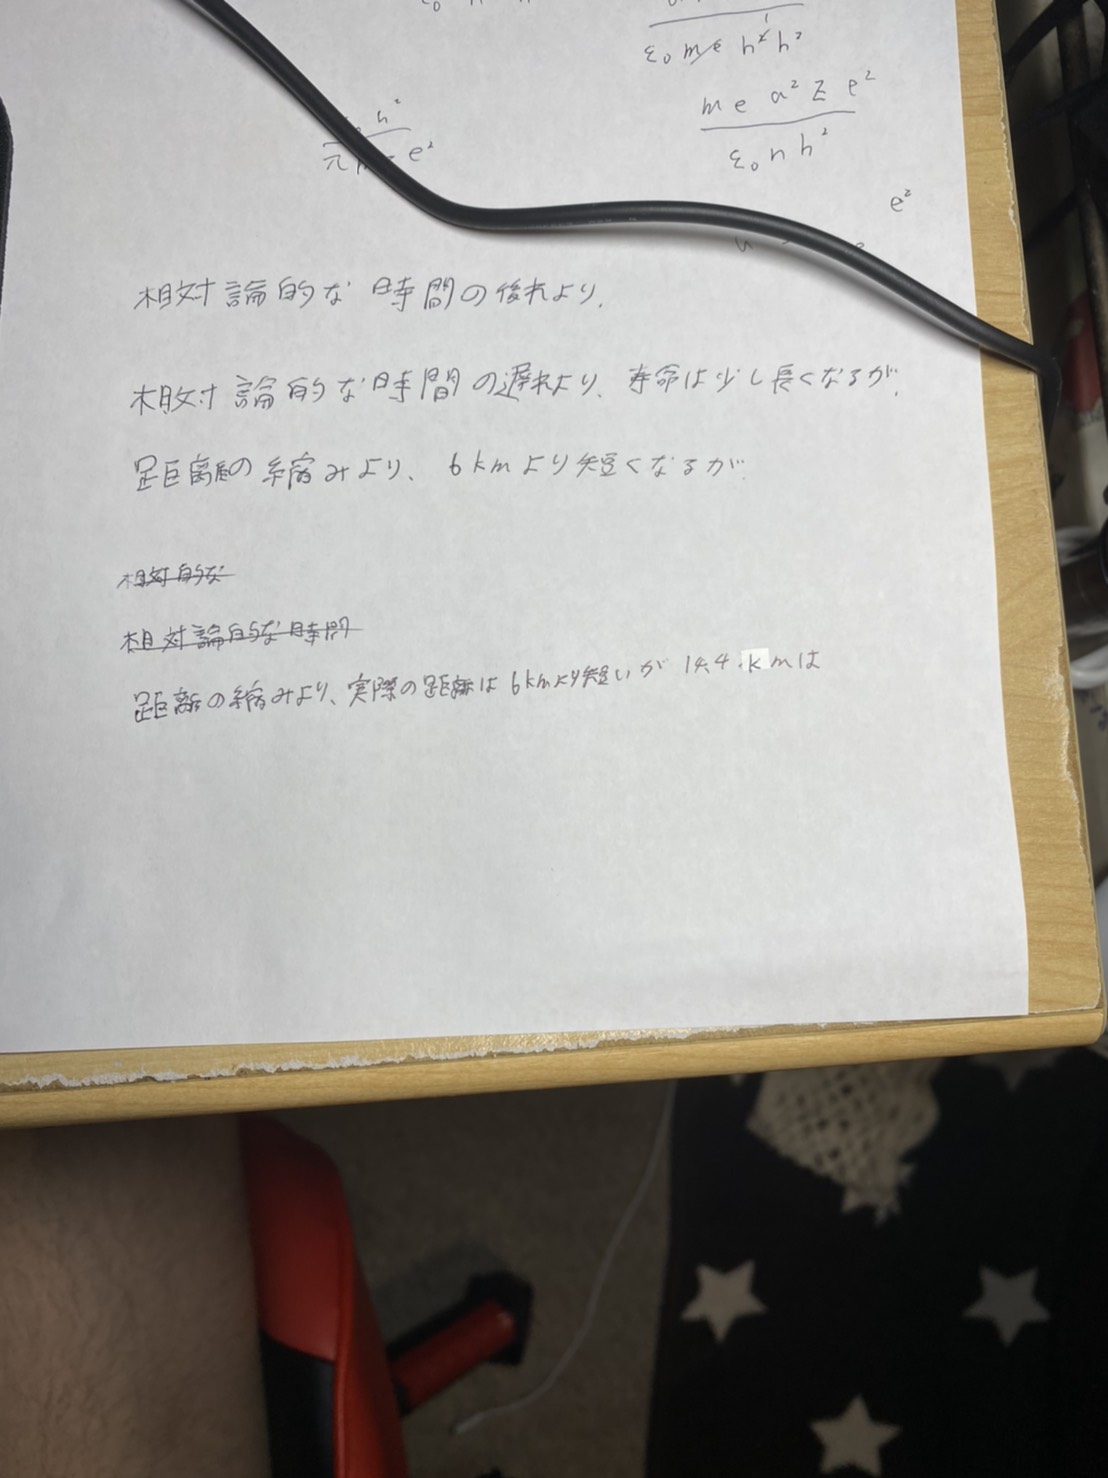 ε₀ m e h² h²
m e a² Z e²
ε₀ n h²
h²
π e²
e²
相対論的な時間の後れより,
相対論的な時間の遅れより、寿命は少し長くなるが,
距離の縮みより、6kmより短くなるが
相対的な
相対論的な時間
距離の縮みより、実際の距離は6kmより短いが 14.4 kmは